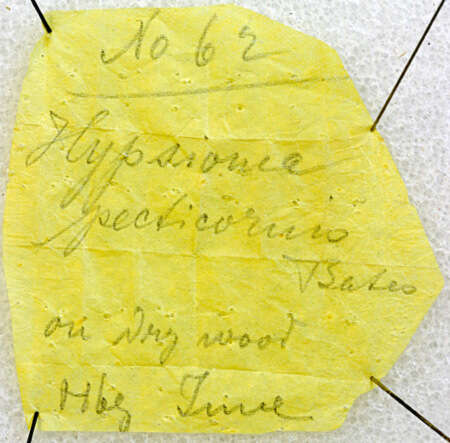 No 62
Hypsioma
pecticornis
Bates
on dry wood
Hbg June